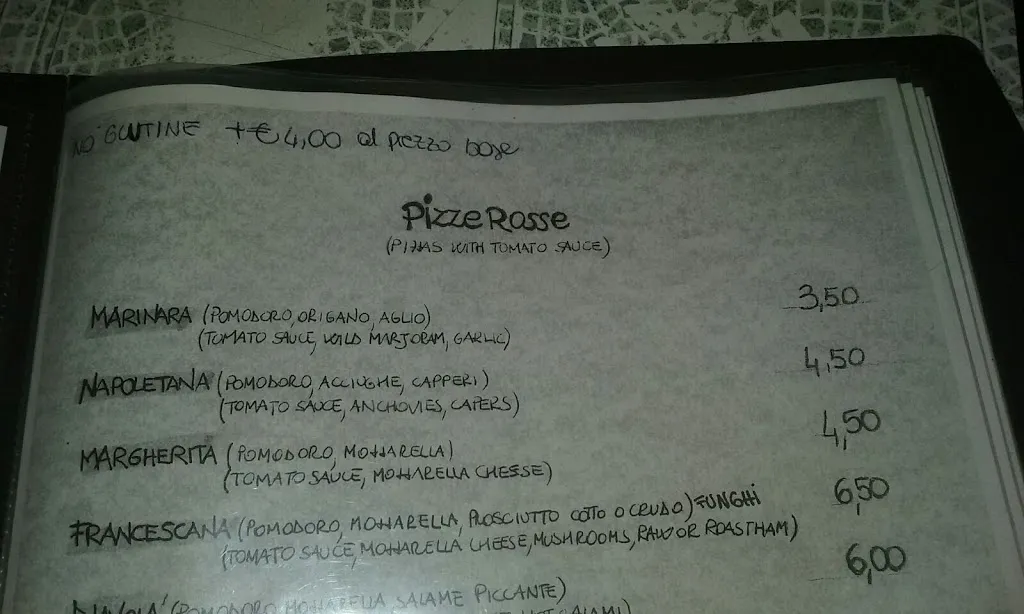 NO GLUTINE + € 4,00 al prezzo base
Pizze Rosse
(PIZZAS WITH TOMATO SAUCE)
MARINARA (POMODORO, ORIGANO, AGLIO) 3,50
(TOMATO SAUCE, WILD MARJORAM, GARLIC)
NAPOLETANA (POMODORO, ACCIUGHE, CAPPERI) 4,50
(TOMATO SAUCE, ANCHOVIES, CAPERS)
MARGHERITA (POMODORO, MOZZARELLA) 4,50
(TOMATO SAUCE, MOZZARELLA CHEESE)
FRANCESCANA (POMODORO, MOZZARELLA, PROSCIUTTO COTTO O CRUDO) FUNGHI 6,50
(TOMATO SAUCE, MOZZARELLA CHEESE, MUSHROOMS, RAW OR ROAST HAM)
DIAVOLA (POMODORO MOZZARELLA SALAME PICCANTE) 6,00
SALAMI)